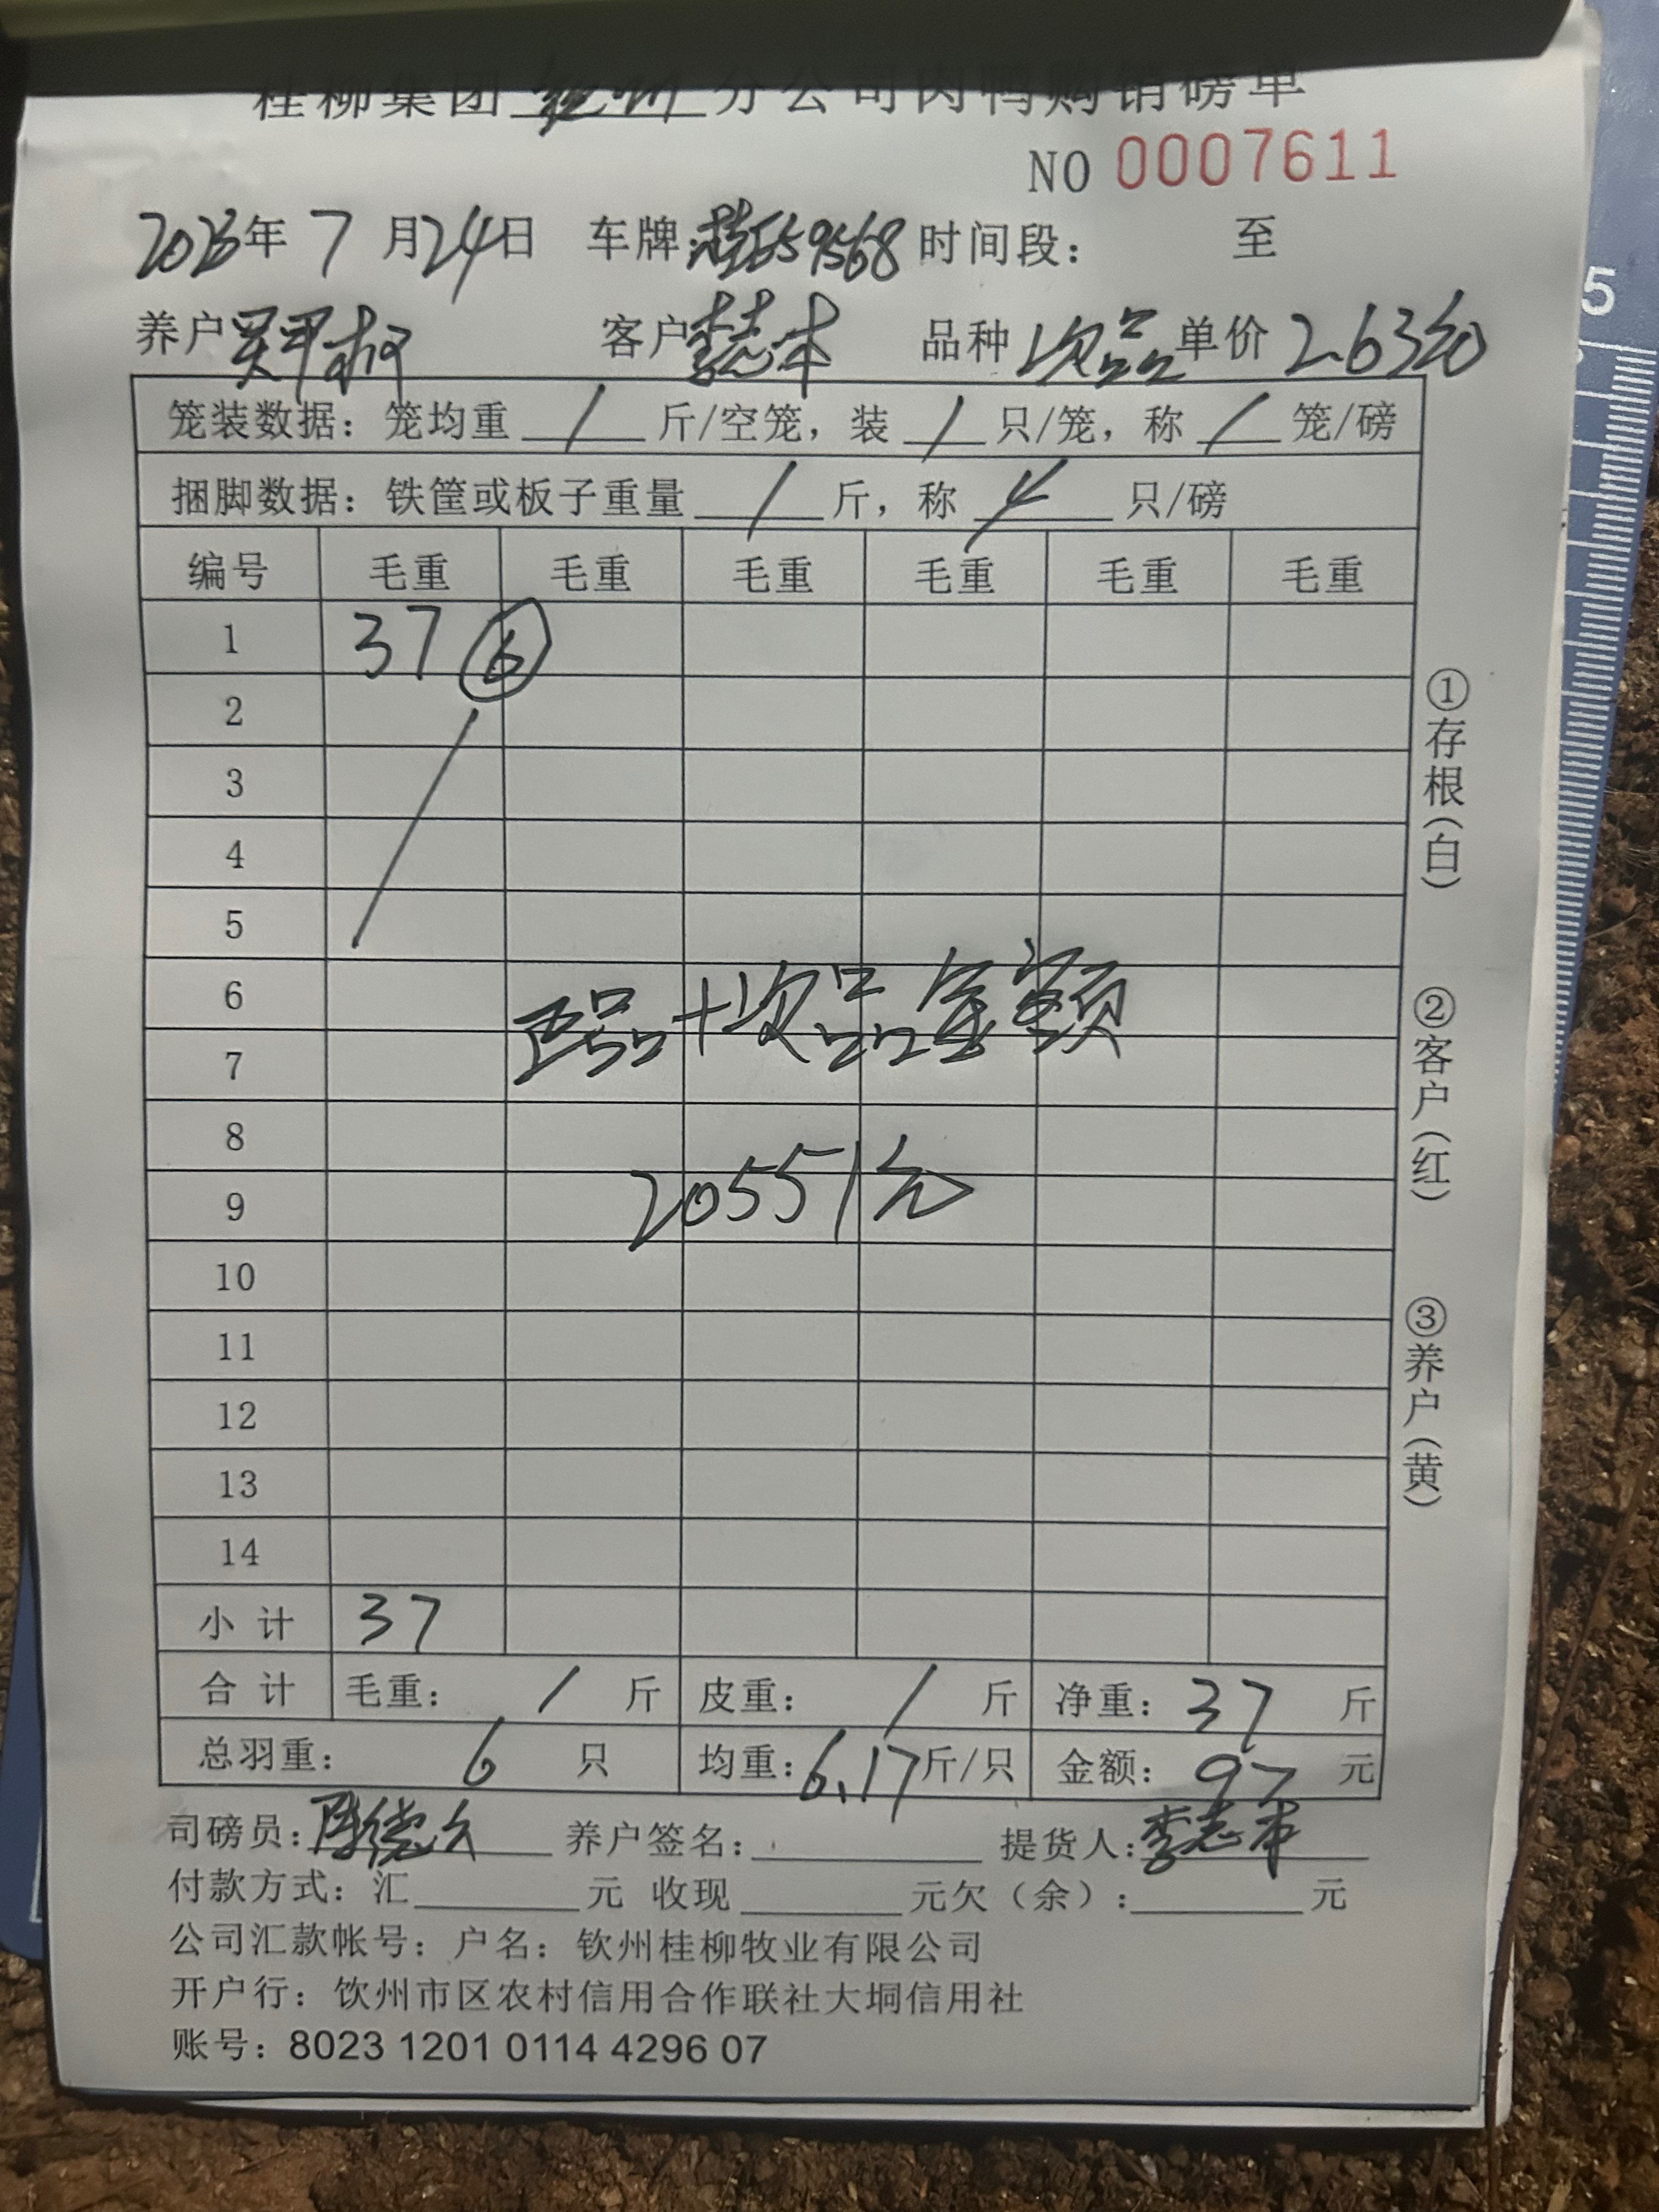 桂柳集团钦州分公司肉鸭购销磅单
NO 0007611
年 7 月 24 日 车牌: 59568 时间段: 至
养户 客户 李志本 品种 次品 单价 2.63元
笼装数据: 笼均重 / 斤/空笼, 装 / 只/笼, 称 / 笼/磅
捆脚数据: 铁筐或板子重量 / 斤, 称 只/磅
编号 毛重 毛重 毛重 毛重 毛重 毛重
1 37 ⑥
2
3
4
5
6
7
正品+次品金额
8
9
20551元
10
11
12
13
14
小计 37
合计 毛重: / 斤 皮重: / 斤 净重: 37 斤
总羽重: 6 只 均重: 6.17 斤/只 金额: 97 元
司磅员: 养户签名: 提货人: 李志本
付款方式: 汇 元 收现 元欠(余): 元
公司汇款帐号: 户名: 钦州桂柳牧业有限公司
开户行: 钦州市区农村信用合作联社大垌信用社
账号: 8023 1201 0114 4296 07
①存根(白)
②客户(红)
③养户(黄)
5